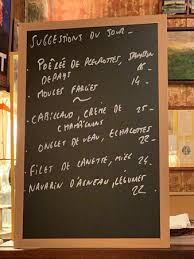 SUGGESTIONS DU JOUR -
• POÊLÉE DE PLEUROTTES,
DE PAYS 18 -
• MOULES FARCIES 14 -
• CABILLAUD, CRÈME DE 25 -
CHAMPIGNONS
ONGLET DE VEAU, ECHALOTTES
22 -
• FILET DE CANETTE, MIEL 24 -
NAVARIN D'AGNEAU, LÉGUMES
22 -